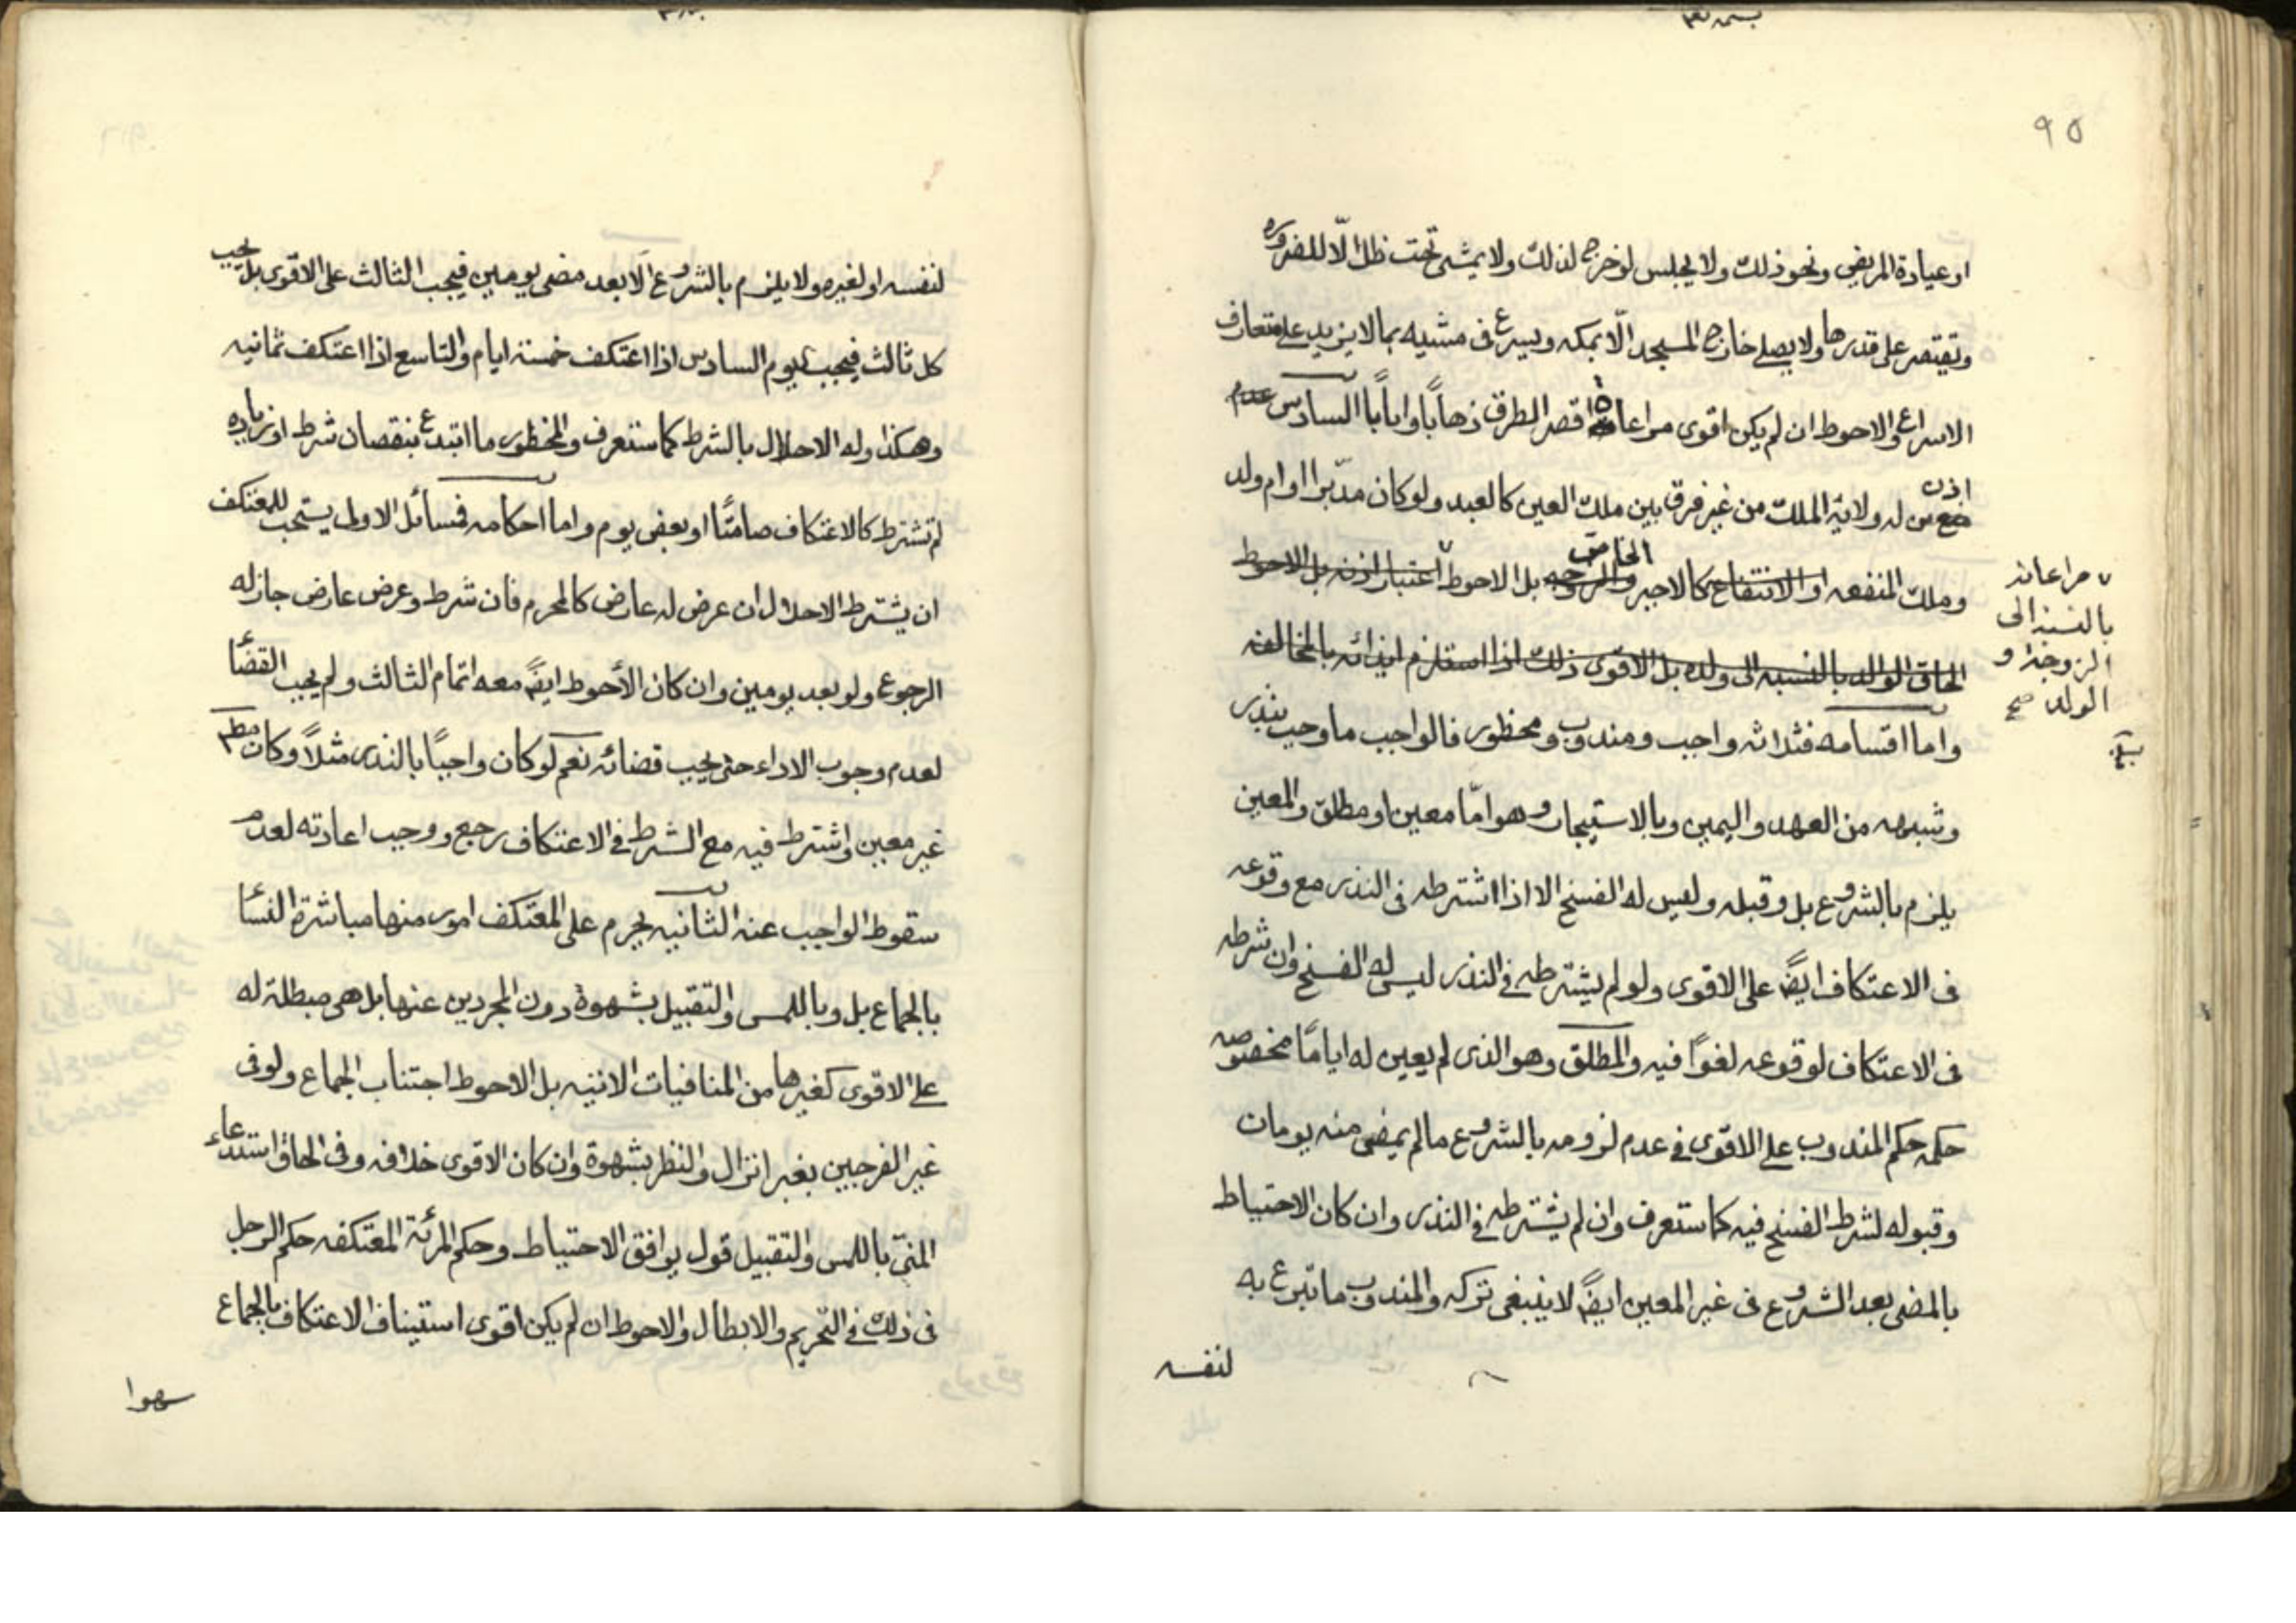 ٩٥
او عيادة المريض ونحو ذلك ولا يجلس لو خرج لذلك ولا يمشى تحت ظل الّا للضروره
وتقتصر على قدرها ولا يصلى خارج المسجد الّا بمكه ويسرع فى مشيه بما لا يزيد على متعارف
الاسراع والاحوط ان لم يكن اقوى مراعاة اقصر الطرق ذهاباً واياباً السادس عدم
اذن
منع من له ولاية الملك من غير فرق بين ملك العين كالعبد ولو كان مدبّرا او ام ولد
الخاص
وملك المنفعه او الانتفاع كالاجير والزوجه بل الاحوط اعتبار اذنه بل الاحوط
الحاق الوالد بالنسبه الى ولده بل الاقوى ذلك اذا استلزم ايذائه بالمخالفه
مراعاته
بالنسبة الى
الزوجة و
الولد صح
واما اقسامه فثلاثه واجب ومندوب ومحظور فالواجب ما وجب بنذر
وشبهه من العهد واليمين وبالاستيجار وهو امّا معين او مطلق والمعين
يلزم بالشروع بل وقبله وليس له الفسخ الا اذا اشترطه فى النذر مع وقوعه
فى الاعتكاف ايضً على الاقوى ولو لم يشترطه فى النذر ليس له الفسخ وان شرطه
فى الاعتكاف لوقوعه لغوًا فيه والمطلق وهو الذى لم يعين له ايامًا مخصوصه
حكمه حكم المندوب على الاقوى فى عدم لزومه بالشروع ما لم يمضى منه يومان
وقبوله لشرط الفسخ فيه كما ستعرف وان لم يشترطه فى النذر وان كان الاحتياط
بالمضى بعد الشروع فى غير المعين ايضً لا ينبغى تركه والمندوب ما تبرع به
لنفسه
لنفسه او لغيره ولا يلزم بالشروع الّا بعد مضى يومين فيجب الثالث على الاقوى بل يجب
كل ثالث فيجب اليوم السادس اذا اعتكف خمسة ايام والتاسع اذا اعتكف ثمانيه
وهكذا وله الاحلال بالشرط كما ستعرف والمحظور ما ابتدع بنقصان شرط او زياده
لم تشترط كالاعتكاف صامتًا او بعض يوم واما احكامه فمسائل الاولى يستحب للمعتكف
ان يشترط الاحلال ان عرض له عارض كالمحرم فان شرط وعرض عارض جاز له
الرجوع ولو بعد يومين وان كان الأحوط ايضً معه اتمام الثالث ولم يجب القضأ
لعدم وجوب الاداء حتى يجب قضائه نعم لو كان واجبًا بالنذر مثلاً وكان مطم
غير معين واشترط فيه مع الشرط فى الاعتكاف رجع ووجب اعادته لعدم
سقوط الواجب عنه الثانيه يحرم على المعتكف امور منها مباشرة النسأ
بالجماع بل وباللمس والتقبيل بشهوة دون المجردين عنها بل هى مبطلة له
على الاقوى كغيرها من المنافيات الاتيه بل الاحوط اجتناب الجماع ولو فى
غير الفرجين بغير انزال والنظر بشهوة وان كان الاقوى خلافه وفى الحاق استدعاء
المنىّ باللمس والتقبيل قول يوافق الاحتياط وحكم المرئة المعتكفه حكم الرجل
فى ذلك فى التحريم والابطال والاحوط ان لم يكن اقوى استيناف الاعتكاف بالجماع
سهوا